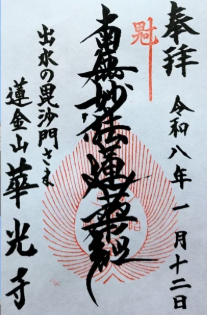 奉拝
令和八年一月十二日
南無妙法蓮華経
出水の毘沙門さま
蓮金山
華光寺